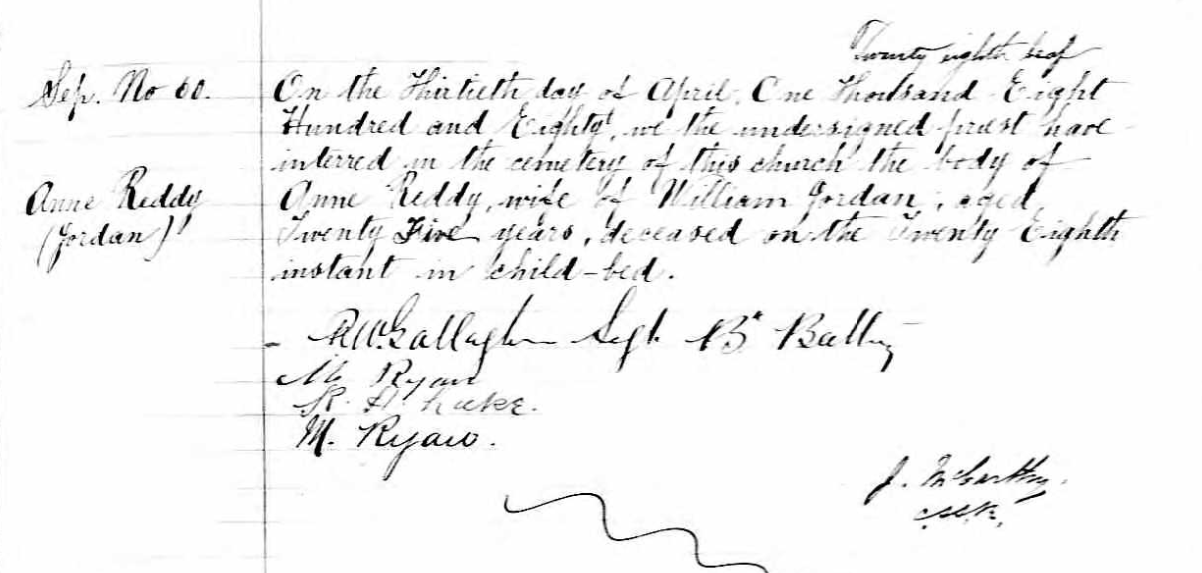 Twenty eighth leaf
Sep. No 60. On the Thirtieth day of April, One Thousand Eight
Hundred and Eighty, we the undersigned priest have
interred in the cemetery of this church the body of
Anne Reddy Anne Reddy, wife of William Jordan, aged
(Jordan) Twenty Five years, deceased on the Twenty Eighth
instant in child-bed.
Sgt. B
M. Ryan
R. H.
M. Ryan.
J. McCarthy.